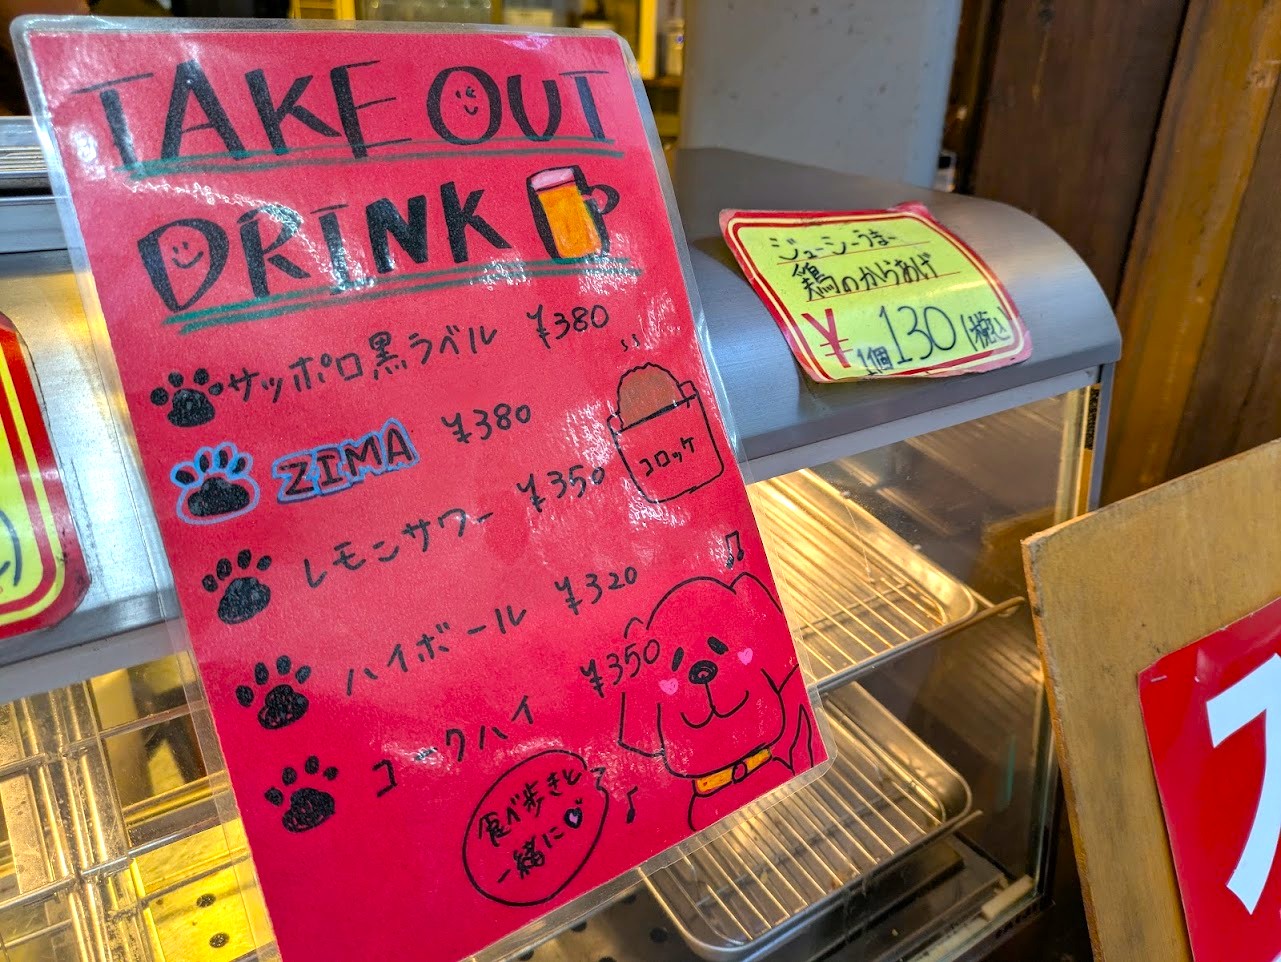 TAKE OUT
DRINK
サッポロ黒ラベル ¥380
ZIMA ¥380
レモンサワー ¥350
ハイボール ¥320
コークハイ ¥350
コロッケ
食べ歩きと
一緒に
ジューシーうまー
鶏のからあげ
¥1個130(税込)